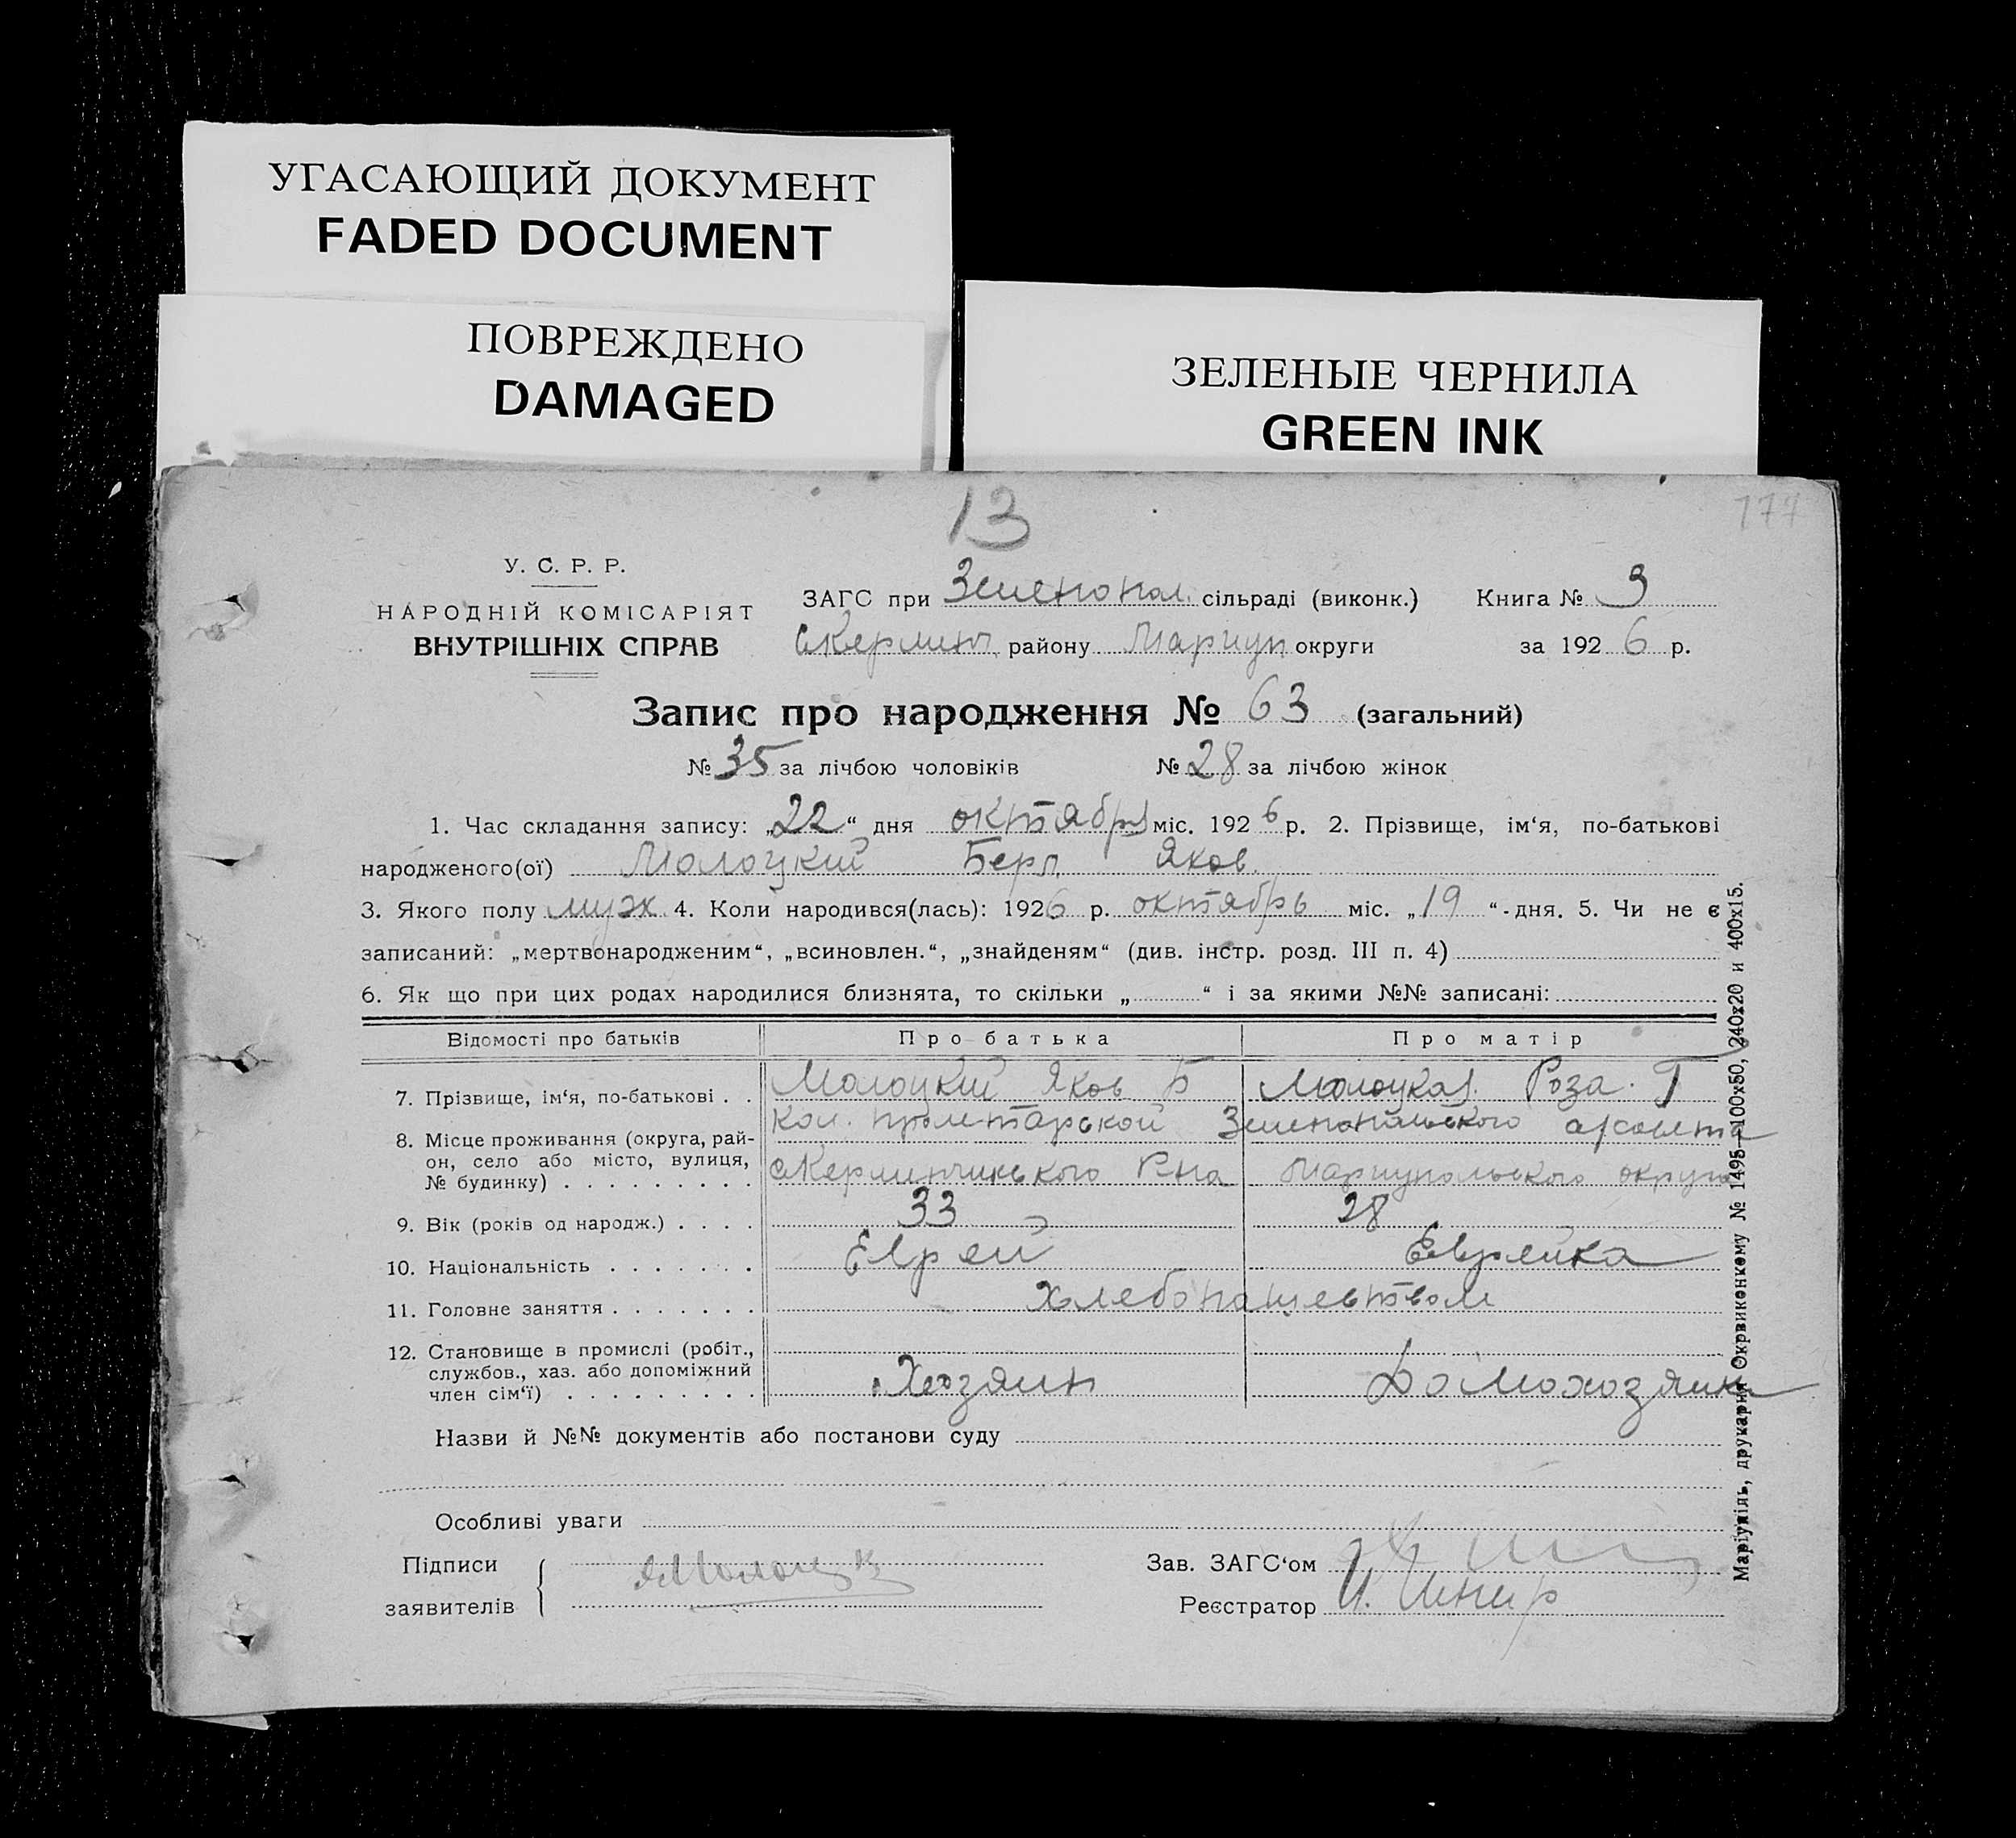 УГАСАЮЩИЙ ДОКУМЕНТ
FADED DOCUMENT
ПОВРЕЖДЕНО
DAMAGED
ЗЕЛЕНЫЕ ЧЕРНИЛА
GREEN INK
13
177
У. С. Р. Р.
НАРОДНІЙ КОМІСАРІЯТ
ВНУТРІШНІХ СПРАВ
ЗАГС при Зеленопол. сільраді (виконк.) Книга № 3
району Мариуп округи за 1926 р.
Запис про народження № 63 (загальний)
№ 35 за лічбою чоловіків № 28 за лічбою жінок
1. Час складання запису: „22“ дня октября міс. 1926 р. 2. Прізвище, ім‘я, по-батькові
народженого(ої) Молоцкий Берл Яков.
3. Якого полу муж 4. Коли народився(лась): 1926 р. октябрь міс. „19“ дня. 5. Чи не є
записаний: „мертвонародженим“, „всиновлен.“, „знайденям“ (див. інстр. розд. III п. 4)
6. Як що при цих родах народилися близнята, то скільки „ “ і за якими №№ записані:
Відомості про батьків Про батька Про матір
7. Прізвище, ім‘я, по-батькові . . Молоцкий Яков Б Молоцкая Роза. Г
8. Місце проживання (округа, рай-
он, село або місто, вулиця,
№ будинку) . . . . . . . . .
Кол. пролетарской Зеленопольского с/совета
Р-на Мариупольского округа
9. Вік (років од народж.) . . . . 33 28
10. Національність . . . . . . . Еврей Еврейка
11. Головне заняття . . . . . . . Хлебопашевством
12. Становище в промислі (робіт.,
службов., хаз. або допоміжний
член сім‘ї) . . . . . . . . .
Хозяин Домохозяйка
Назви й №№ документів або постанови суду
Особливі уваги
Підписи
заявителів
Зав. ЗАГС‘ом
Реєстратор
Маріупіль, друкарня Окрвиконкому № 1495—100х50, 240х20 и 400х15.